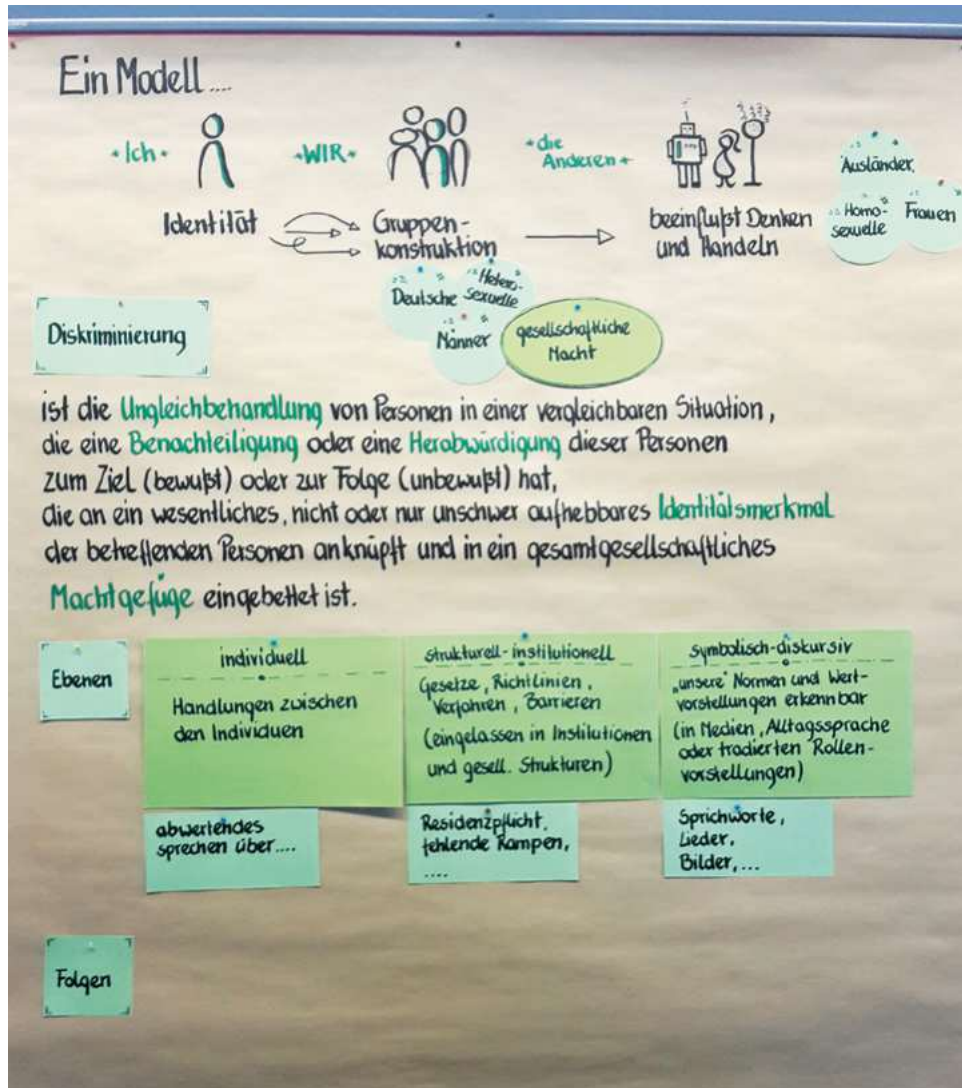 Ein Modell....
•Ich•
•WIR•
•die
Anderen•
Ausländer,
Homo-
sexuelle
Frauen
Identität
Gruppen-
konstruktion
beeinflußt Denken
und Handeln
Deutsche
Hetero-
sexuelle
Männer
gesellschaftliche
Macht
Diskriminierung
ist die Ungleichbehandlung von Personen in einer vergleichbaren Situation,
die eine Benachteiligung oder eine Herabwürdigung dieser Personen
zum Ziel (bewußt) oder zur Folge (unbewußt) hat,
die an ein wesentliches, nicht oder nur unschwer aufhebbares Identitätsmerkmal
der betreffenden Personen anknüpft und in ein gesamtgesellschaftliches
Machtgefüge eingebettet ist.
Ebenen
individuell
Handlungen zwischen
den Individuen
strukturell-institutionell
Gesetze, Richtlinien,
Verfahren, Barrieren
(eingelassen in Institutionen
und gesell. Strukturen)
symbolisch-diskursiv
„unsere" Normen und Wert-
vorstellungen erkennbar
(in Medien, Alltagssprache
oder tradierten Rollen-
vorstellungen)
abwertendes
sprechen über....
Residenzpflicht,
fehlende Rampen,
....
Sprichworte,
Lieder,
Bilder,...
Folgen